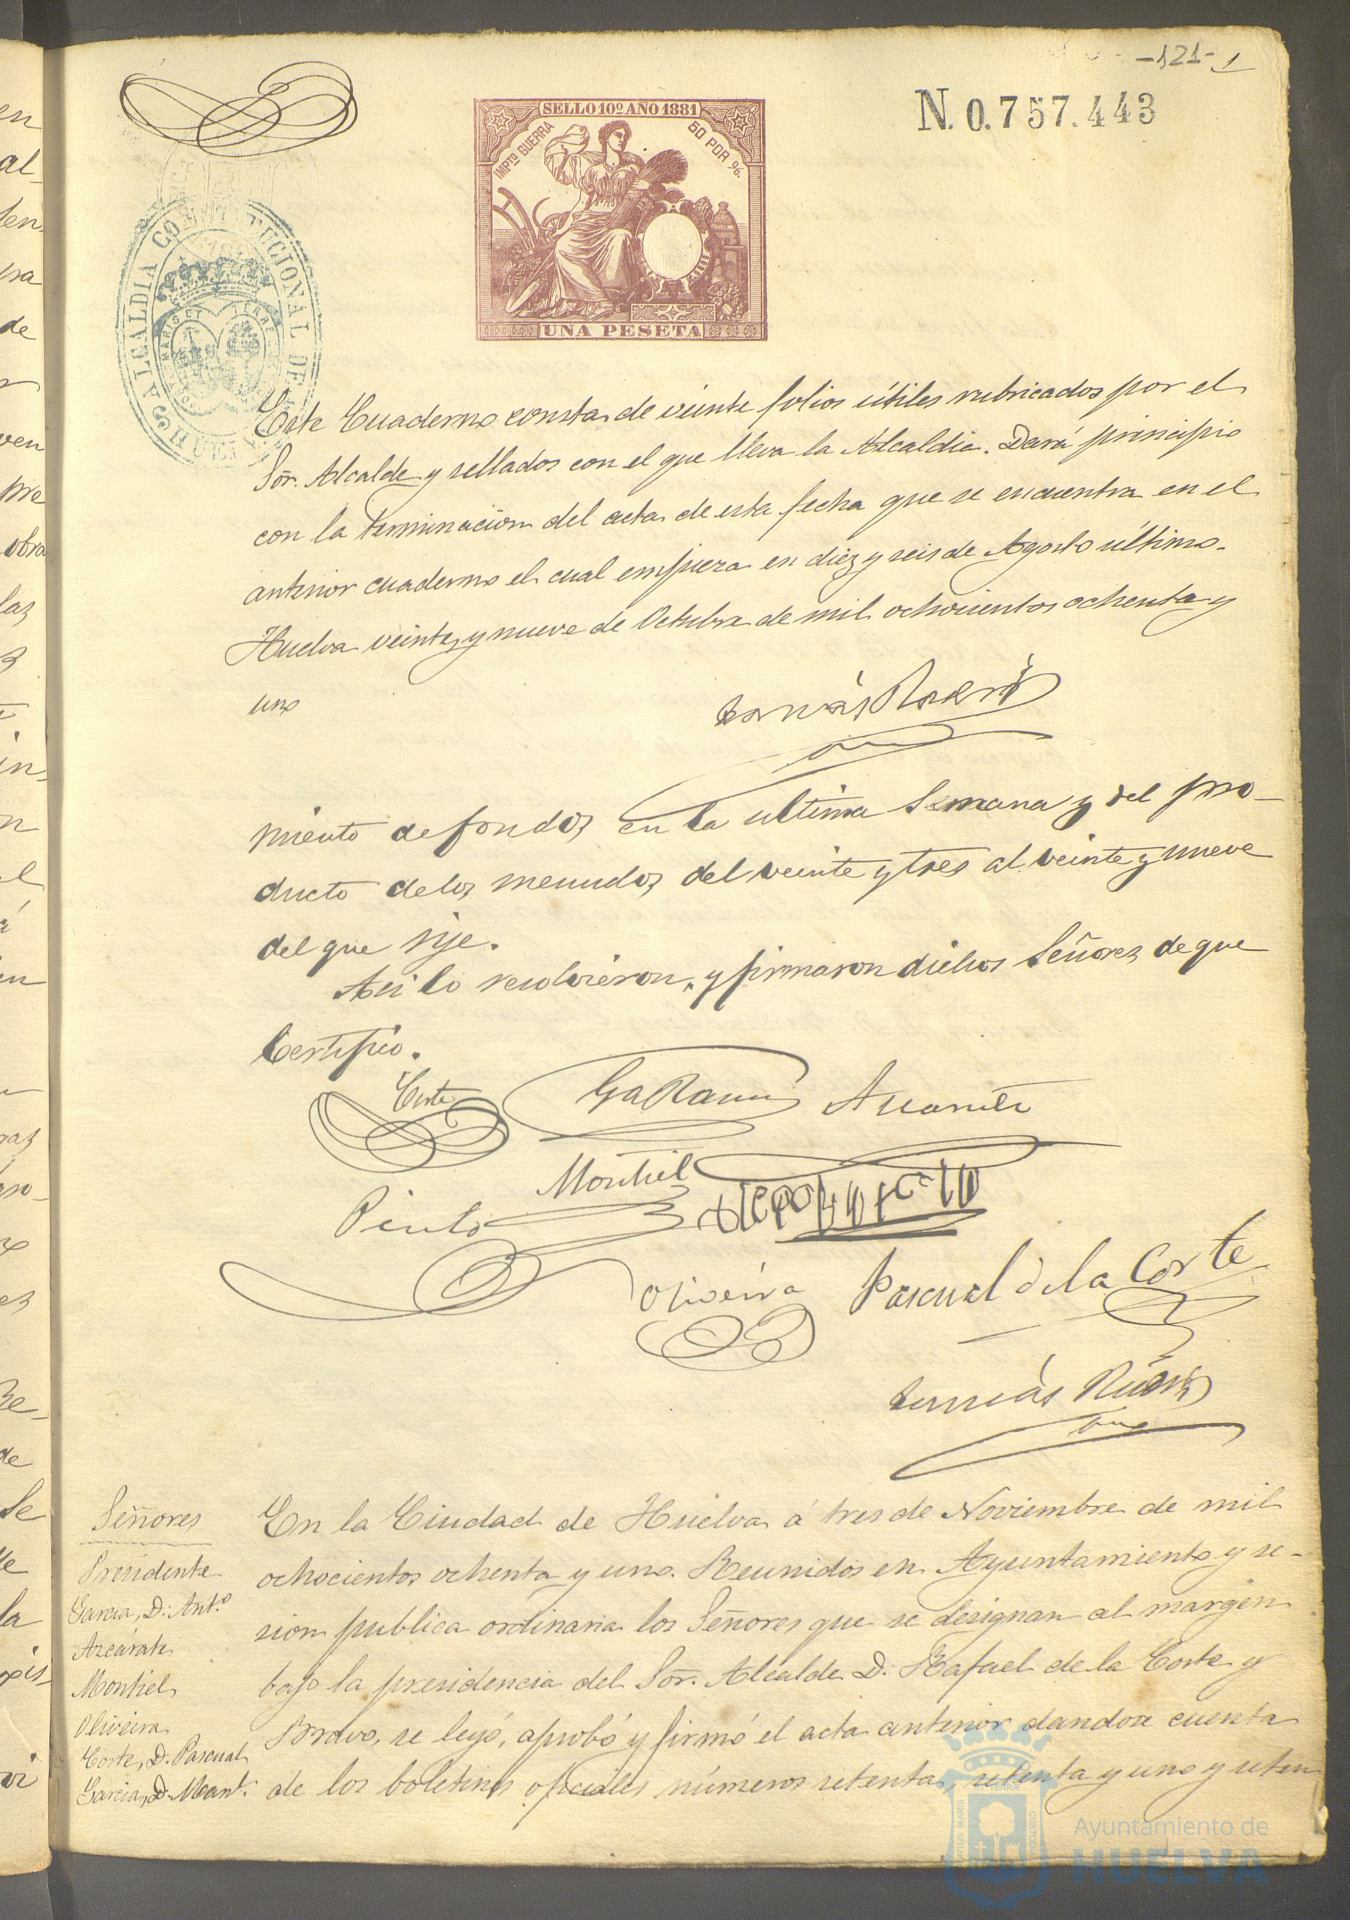 -121- 1
N. 0.757.443
SELLO 10º AÑO 1881
IMPTO GUERRA 50 POR %.
UNA PESETA
ALCALDIA CONSTITUCIONAL DE HUELVA
Este Cuaderno consta de veinte folios útiles rubricados por el
Sór. Alcalde y sellados con el que lleva la Alcaldia. Dará principio
con la terminacion del acta de esta fecha que se encuentra en el
anterior cuaderno el cual empieza en diez y seis de Agosto último.
Huelva veinte y nueve de Octubre de mil ochocientos ochenta y
uno
miento de fondos en la ultima Semana y del pro-
ducto de los menudos del veinte y tres al veinte y nueve
del que rije.
Asi lo resolvieron, y firmaron dichos Señores de que
Certifico.
Corte
Montiel
Pinto
Oliveira
Pascual de la Corte
Tomás
Señores
Presidente
Garcia, D. Antº
Azcárate
Montiel
Oliveira
Corte, D. Pascual
Garcia, D. Man.
En la Ciudad de Huelva á tres de Noviembre de mil
ochocientos ochenta y uno. Reunidos en Ayuntamiento y se-
sion publica ordinaria los Señores que se designan al margen
bajo la presidencia del Sór. Alcalde D. Rafael de la Corte y
Bravo, se leyó, aprobó y firmó el acta anterior dandose cuenta
de los boletines oficiales números setenta, setenta y uno y seten
Ayuntamiento de
HUELVA